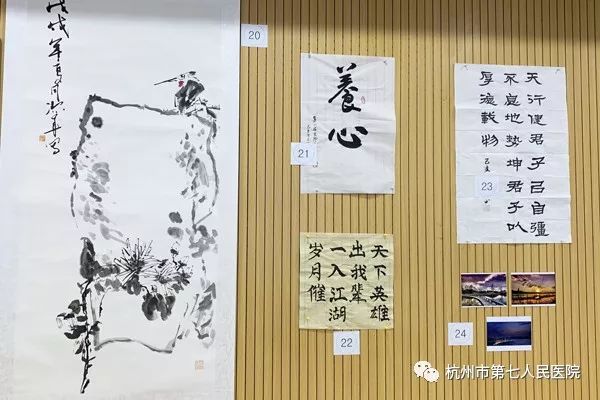 戊戌年
20
養心
21
天行健君子㠯自彊
不息地势坤君子以
厚德载物
己亥
23
天下英雄
出我辈
一入江湖
岁月催
22
24
杭州市第七人民医院